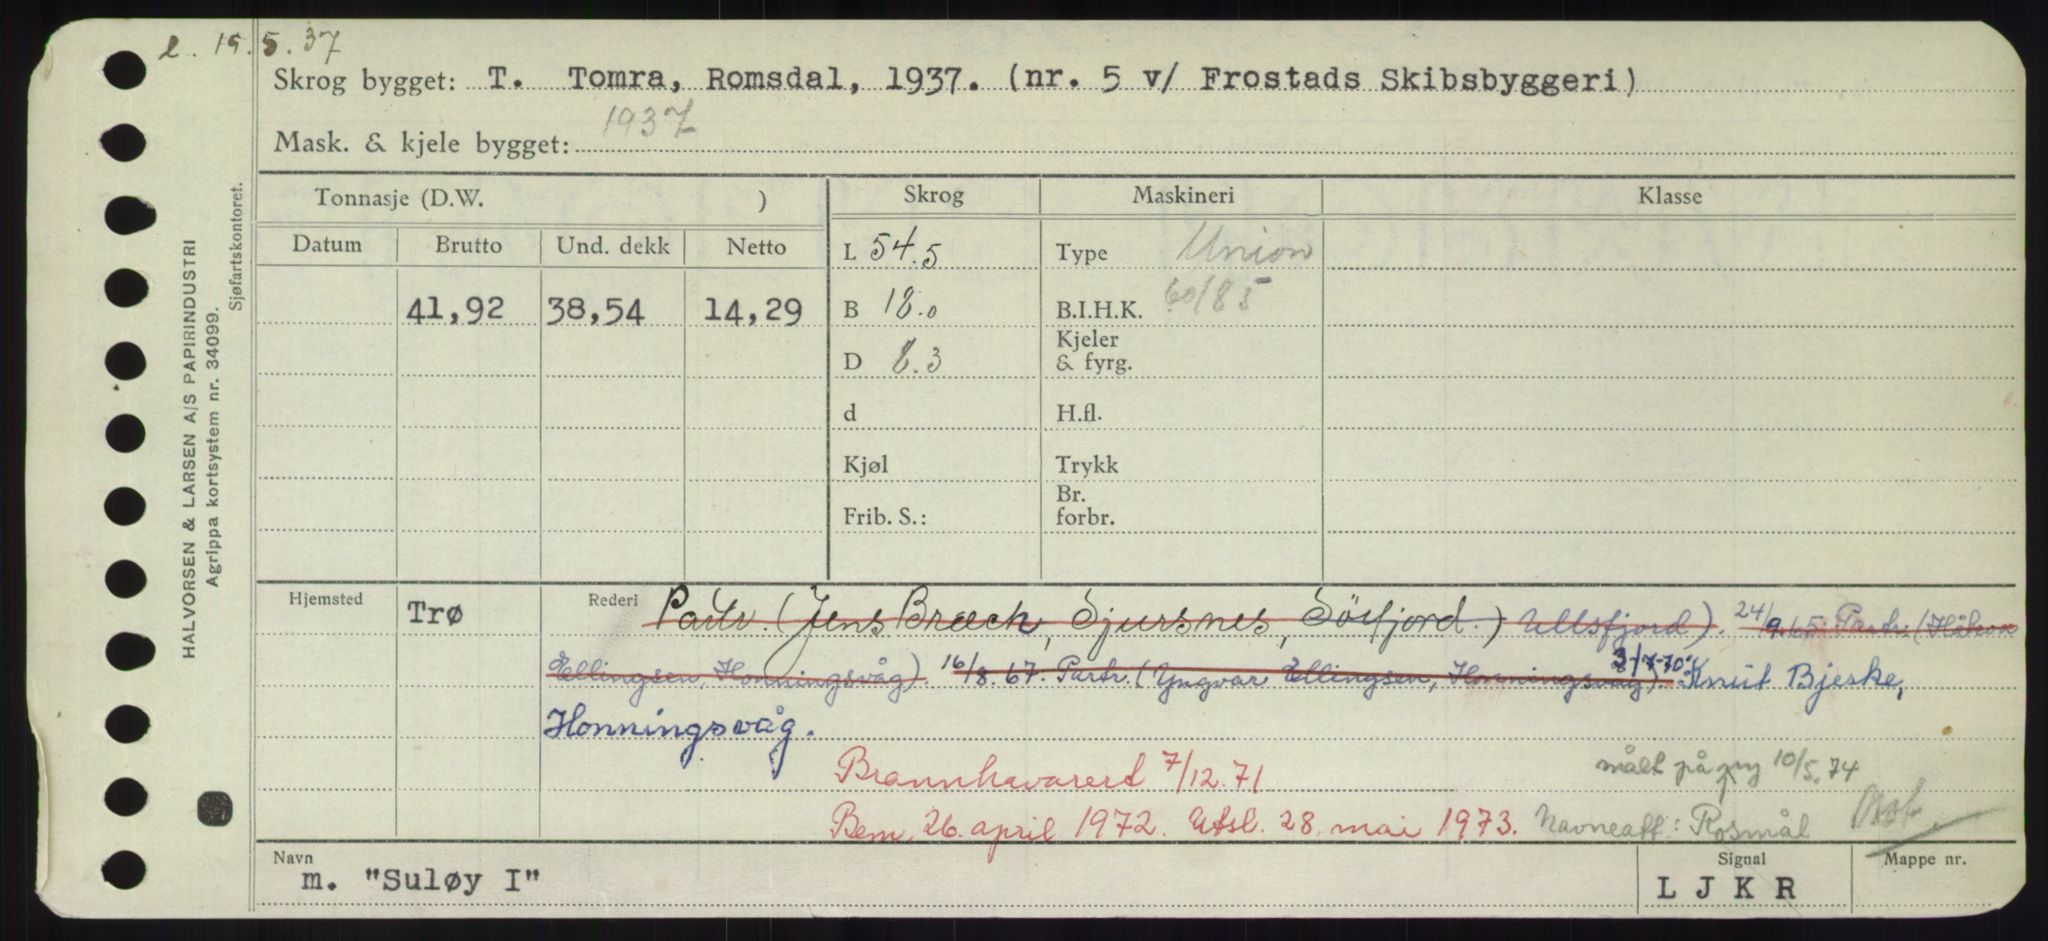 l. 15.5.37
Skrog bygget: T. Tomra, Romsdal, 1937. (nr. 5 v/ Frostads Skibsbyggeri)
Mask. & kjele bygget: 1937
Tonnasje (D.W. ) Skrog Maskineri Klasse
Datum Brutto Und. dekk Netto L 54.5 Type Union
41,92 38,54 14,29 B 18.0 B.I.H.K. 60/85
D 8.3 Kjeler & fyrg.
d H.fl.
Kjøl Trykk
Frib. S.: Br. forbr.
Hjemsted Trø Rederi Partr. (Jens Bræck, Sjursnes, Sörfjord.) Ullsfjord). 24/9.65. Partr. (Håkon
Ellingsen, Honningsvåg). 16/8.67. Partr. (Yngvar Ellingsen, Honningsvåg). 3/7-70: Knut Bjerke,
Honningsvåg.
Brannhavarert 7/12.71 målt på ny 10/5.74
Bem. 26. april 1972. Utsl. 28. mai 1973. Navneaff: Rosmål
Navn m. "Suløy I" Signal L J K R Mappe nr.
HALVORSEN & LARSEN A/S PAPIRINDUSTRI
Agrippa kortsystem nr. 34099.
Sjøfartskontoret.